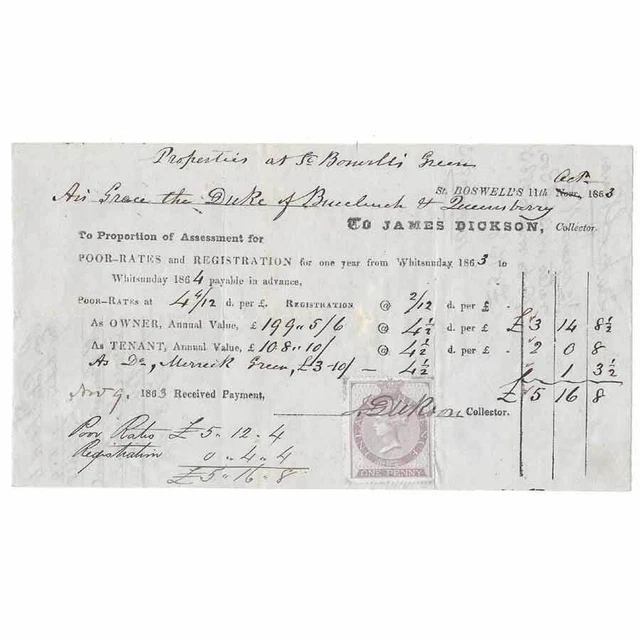 Properties at St Boswells Green
Oct.
St. BOSWELL'S 11th Nov. 1863
His Grace the Duke of Buccleuch & Queensberry
To JAMES DICKSON, Collector.
To Proportion of Assessment for
POOR-RATES and REGISTRATION for one year from Whitsunday 1863 to
Whitsunday 1864 payable in advance,
POOR-RATES at 4 4/12 d. per £. REGISTRATION @ 2/12 d. per £
As OWNER, Annual Value, £ 199 " 5/6 @ 4½ d. per £ £3 14 8½
As TENANT, Annual Value, £ 108 " 10/ @ 4½ d. per £ 2 0 8
As Do, Merrick Green, £3-10/ - 4½ 1 3½
£5 16 8
Nov 9. 1863 Received Payment, J. Dickson Collector.
Poor Rates £5 " 12 " 4
Registration 0 " 4 " 4
£5 " 16 " 8
ONE PENNY